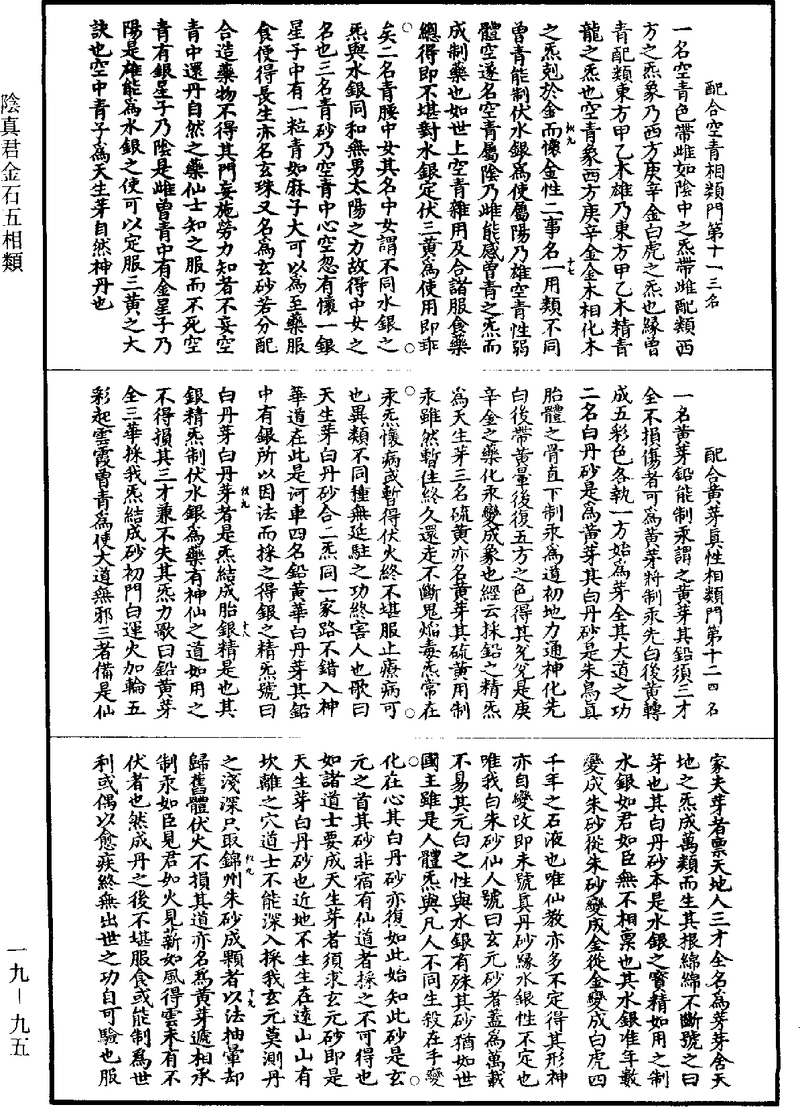 配合空青相類門第十一三名
一名空青色帶雌如陰中之炁帶雌配類西
方之炁象乃西方庚辛金白虎之炁也緣曾
青配類東方甲乙木雄乃東方甲乙木精青
龍之炁也空青象西方庚辛金金木相化木
之炁剋於金而懷金性二事名一用類不同
曾青能制伏水銀為使屬陽乃雄空青性弱
體空遂名空青屬陰乃雌能感曾青之炁而
成制藥也如世上空青雜用及合諸服食藥
總得即不堪對水銀定伏三黃為使用即乖
矣二名青腰中女其名中女謂不同水銀之
炁與水銀同和無男太陽之力故得中女之
名也三名青砂乃空青中心空忽有懷一銀
星子中有一粒青如麻子大可以為至藥服
食便得長生亦名玄珠又名為玄砂若分配
合造藥物不得其門妄施勞力知者不妄空
青中還丹自然之藥仙士知之服而不死空
青有銀星子乃陰是雌曾青中有金星子乃
陽是雄能為水銀之使可以定服三黃之大
訣也空中青子為天生芽自然神丹也
配合黃芽真性相類門第十二四名
一名黃芽鉛能制汞謂之黃芽其鉛須三才
全不損傷者可為黃芽將制汞先白後黃轉
成五彩色各執一方始為芽全其大道之功
二名白丹砂是為黃芽其白丹砂是朱鳥真
胎體之骨直下制汞為道初地力通神化先
白後帶黃暈後復五方之色得其兌兌是庚
辛金之藥化汞變成象也經云採鉛之精炁
為天生芽三名硫黃亦名黃芽其硫黃用制
汞雖然暫住終久還走不斷鬼焰毒炁常在
汞炁懷病或暫得伏火終不堪服止療病可
也異類不同種無延駐之功終害人也歌曰
天生芽白丹砂合二炁同一家路不錯入神
華道在此是河車四名鉛黃華白丹芽其鉛
中有銀所以因法而採之得銀之精炁號曰
白丹芽白丹芽者是炁結成胎銀精是也其
銀精炁制伏水銀為藥有神仙之道如用之
不得損其三才兼不失其炁力歌曰鉛黃芽
全三華採我炁結成砂初門白運火加輪五
彩起雲霞曾青為使大道無邪三者備是仙
家夫芽者稟天地人三才全名為芽芽含天
地之炁成萬類而生其根綿綿不斷號之曰
芽也其白丹砂本是水銀之寶精如用之制
水銀如君如臣無不相稟也其水銀准年數
變成朱砂從朱砂變成金從金變成白虎四
千年之石液也唯仙教亦多不定得其形神
亦自變改即朱號真丹砂緣水銀性不定也
唯我白朱砂仙人號曰玄元砂者蓋為萬載
不易其元白之性與水銀有殊其砂猶如世
國主雖是人體炁與凡人不同生殺在手變
化在心其白丹砂亦復如此始知此砂是玄
元之首其砂非宿有仙道者採之不可得也
如諸道士要成天生芽者須求玄元砂即是
天生芽白丹砂也近地不生生在遠山山有
坎離之穴道士不能深入採我玄元莫測丹
之淺深只取錦州朱砂成顆者以法抽暈却
歸舊體伏火不損其道亦名為黃芽遞相承
制汞如臣見君如火見薪如風得雲未有不
伏者也然成丹之後不堪服食或能制為世
利或偶以愈疾終無出世之功自可驗也服
陰真君金石五相類
一九－九五